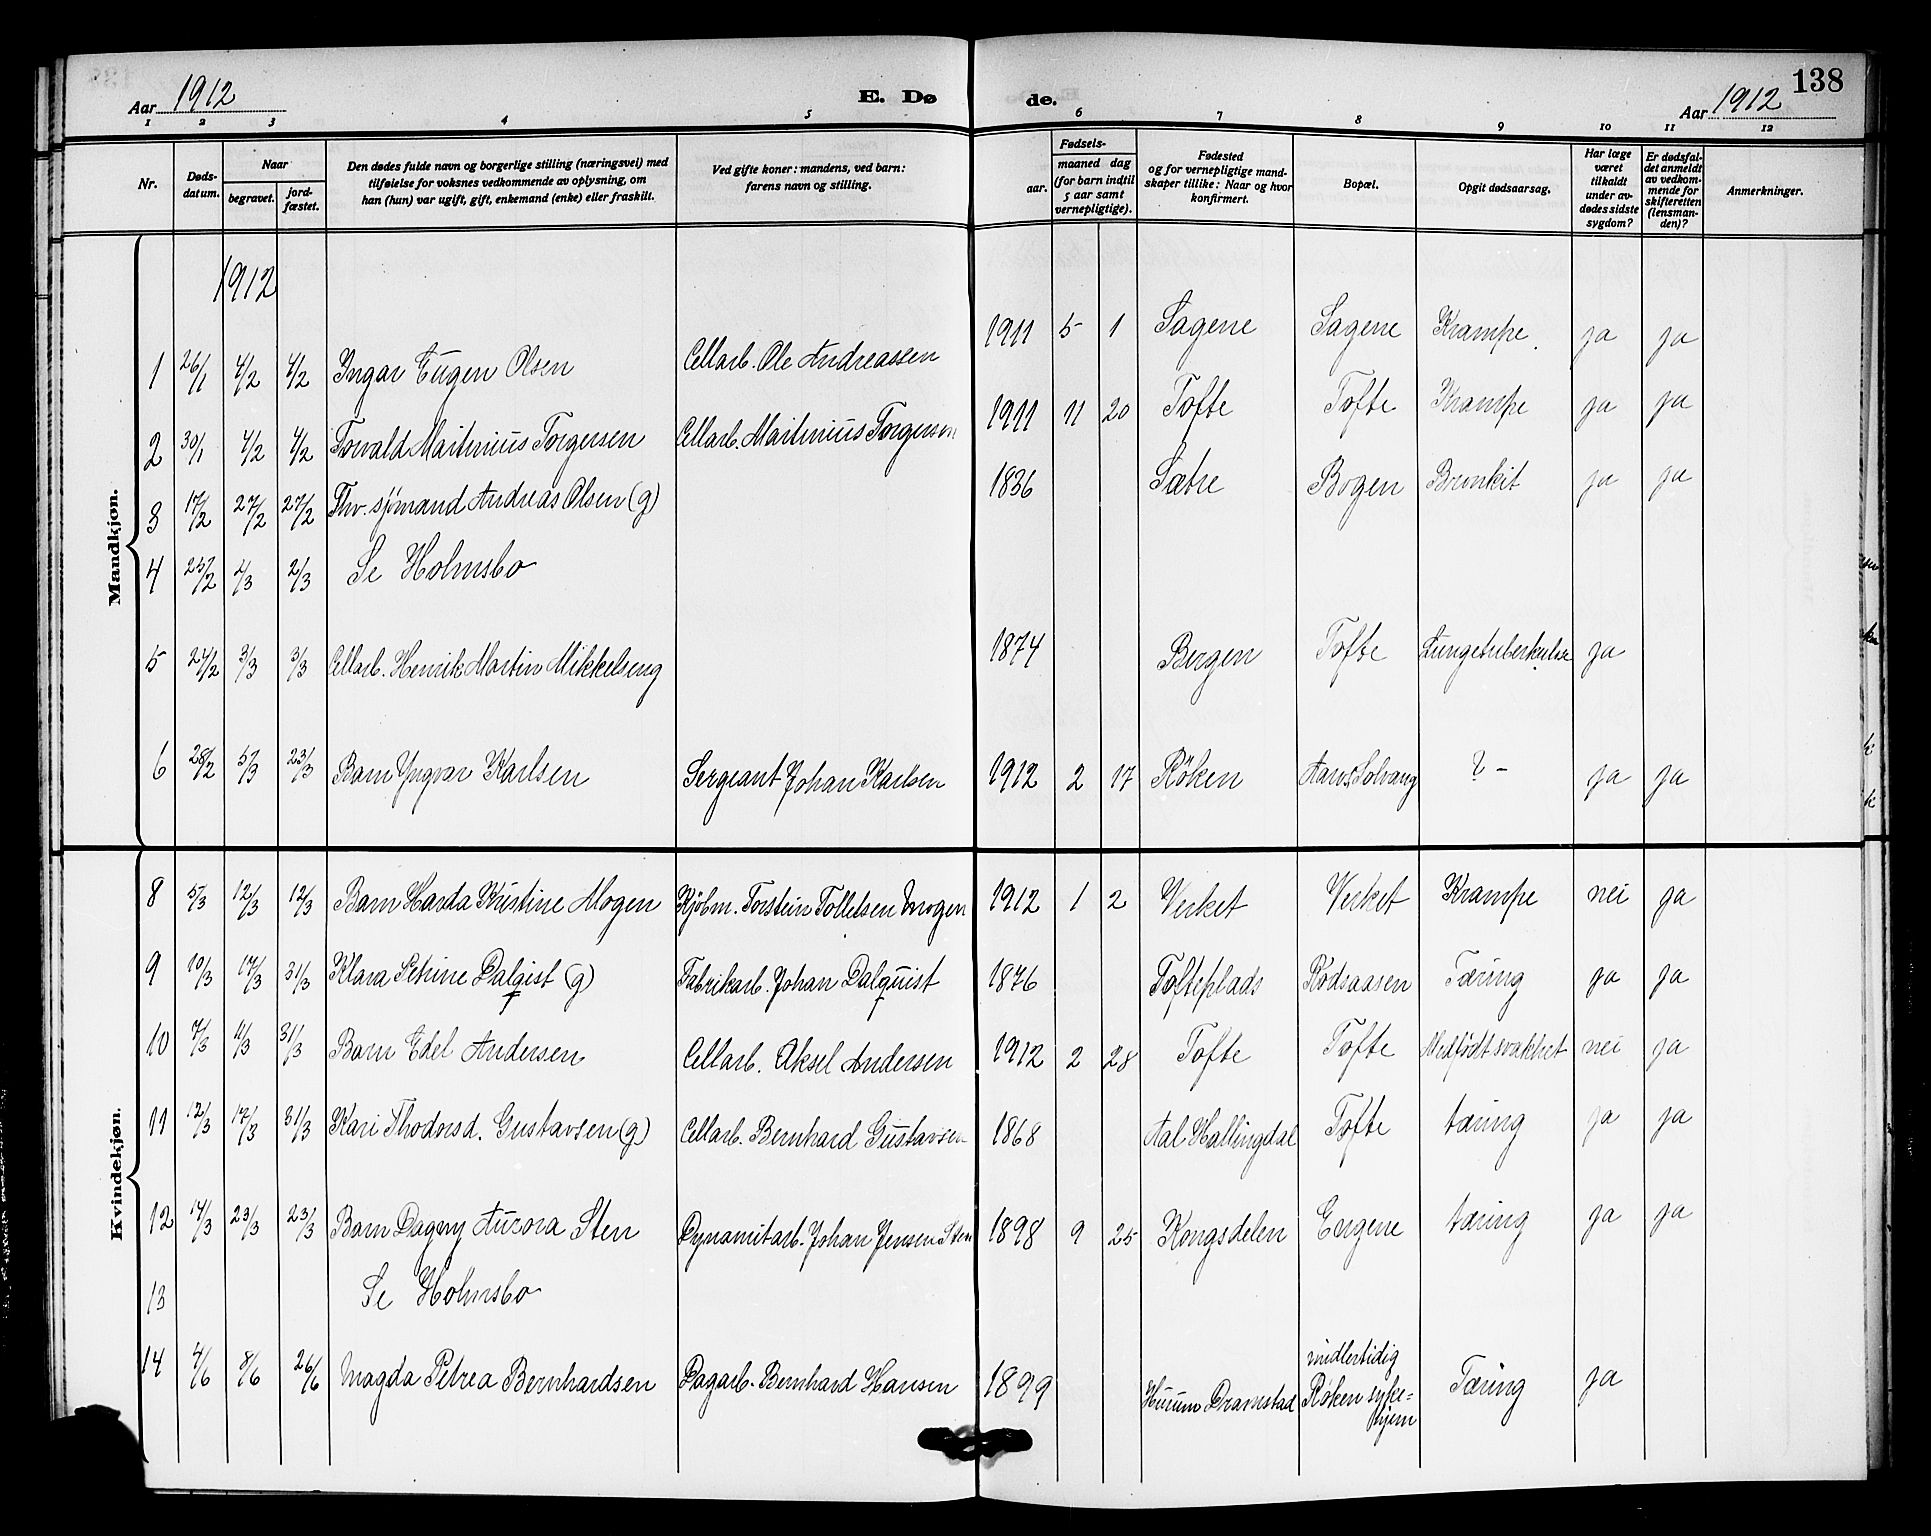 138
Aar 1912 E. Dø de. Aar 1912
1 2 3 4 5 6 7 8 9 10 11 12
Nr. | Døds-datum. | Naar begravet. | jord-fæstet. | Den dødes fulde navn og borgerlige stilling (næringsvei) med tilføielse for voksnes vedkommende av oplysning, om han (hun) var ugift, gift, enkemand (enke) eller fraskilt. | Ved gifte koner: mandens, ved barn: farens navn og stilling. | Fødsels- aar. | maaned dag (for barn indtil 5 aar samt vernepligtige). | Fødested og for vernepligtige mand-skaper tillike: Naar og hvor konfirmert. | Bopæl. | Opgit dødsaarsag. | Har læge været tilkaldt under av-dødes sidste sygdom? | Er dødsfal-det anmeldt av vedkom-mende for skifteretten (lensman-den)? | Anmerkninger.
Mandkjøn.
1912
1 26/1 4/2 4/2 Ingar Eugen Olsen Cellarb. Ole Andreassen 1911 5 1 Sagene Sagene Krampe. ja ja
2 30/1 4/2 4/2 Torvald Martinius Torgersen Cellarb. Martinius Torgersen 1911 11 20 Tofte Tofte Krampe ja ja
3 17/2 27/2 27/2 Fhv. sjømand Andreas Olsen (g) 1836 Sætre Bogen Bronkit ja ja
4 25/2 2/3 2/3 Se Holmsbo
5 24/2 3/3 3/3 Cellarb. Henrik Martin Mikkelseng 1874 Bergen Tofte Lungetuberkulose ja
6 28/2 5/3 23/3 Barn Yngvar Karlsen Sergeant Johan Karlsen 1912 2 17 Røken Aarus, Solvang ? - ja ja
Kvindekjøn.
8 5/3 12/3 12/3 Barn Harda Kristine Mogen Kjøbm. Torstein Tollefsen Mogen 1912 1 2 Verket Verket Krampe nei ja
9 10/3 17/3 31/3 Klara Petrine Dalqist (g) Fabrikarb. Johan Dalquist 1876 Tofteplads Rødsaasen Tæring ja ja
10 7/3 4/3 31/3 Barn Edel Andersen Cellarb. Aksel Andersen 1912 2 28 Tofte Tofte Medfødt svakhet nei ja
11 12/3 17/3 31/3 Kari Thodorsd. Gustavsen (g) Cellarb. Bernhard Gustavsen 1868 Aal Hallingdal Tofte tæring ja ja
12 14/3 23/3 23/3 Barn Dagny Aurora Sten Dynamitarb. Johan Jensen Sten 1898 9 25 Kongsdelen Engene tæring ja ja
13 Se Holmsbo
14 4/6 8/6 26/6 Magda Petrea Bernhardsen Dagarb. Bernhard Hansen 1899 Hurum Dramstad midlertidig Røken syke=hjem Tæring ja